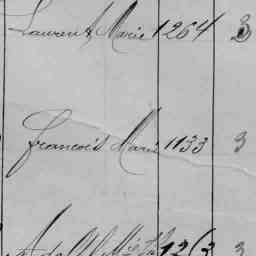 Laurent Marie 1264 3
Francois Marie 1133 3
1263 3